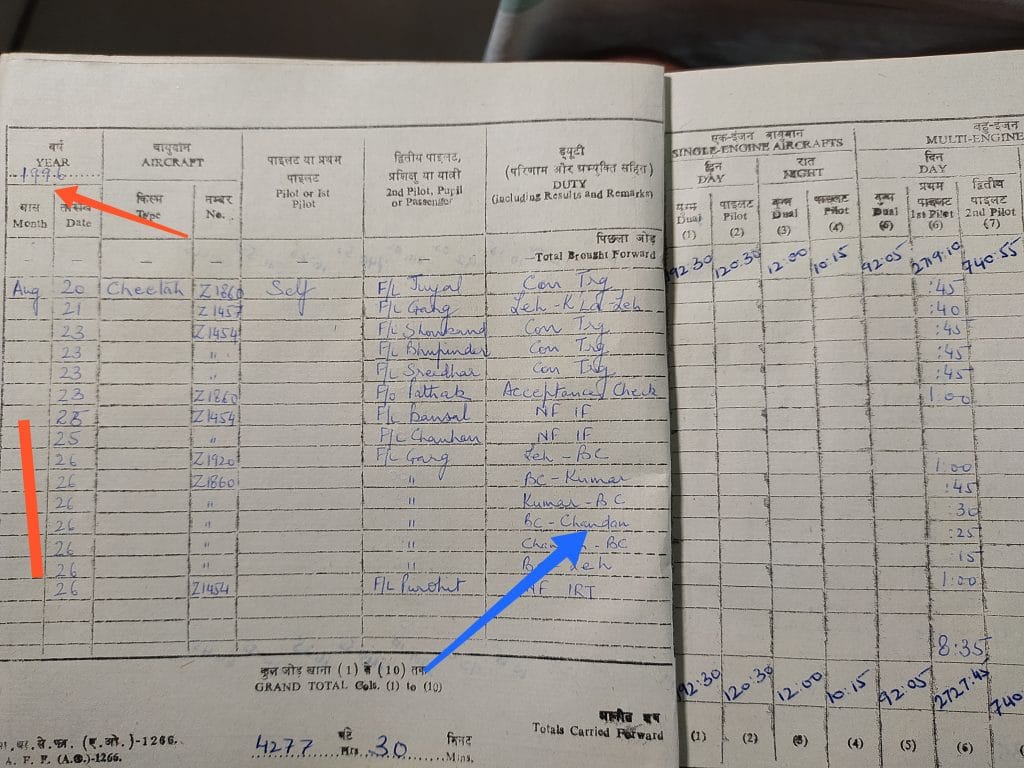 वर्ष
YEAR
1996
मास
Month
तारीख
Date
वायुयान
AIRCRAFT
किस्म
Type
नम्बर
No.
पाइलट या प्रथम
पाइलट
Pilot or 1st
Pilot
द्वितीय पाइलट,
प्रशिक्षु या यात्री
2nd Pilot, Pupil
or Passenger
ड्यूटी
(परिणाम और अभ्युक्ति सहित)
DUTY
(including Results and Remarks)
एक-इंजन वायुयान
SINGLE-ENGINE AIRCRAFTS
दिन
DAY
रात
NIGHT
बहु-इंजन
MULTI-ENGINE
दिन
DAY
युग्म
Dual
(1)
पाइलट
Pilot
(2)
युग्म
Dual
(3)
पाइलट
Pilot
(4)
युग्म
Dual
(5)
प्रथम
पाइलट
1st Pilot
(6)
द्वितीय
पाइलट
2nd Pilot
(7)
पिछला जोड़
— — — — — —Total Brought Forward 192:30 120:30 12:00 10:15 92:05 2719:10 740:55
Aug 20 Cheetah Z1860 Self F/L Juyal Con Trg :45
21 Z1457 F/L Garg Leh-K La-Leh :40
23 Z1454 F/L Con Trg :45
23 " F/L Bhupinder Con Trg :45
23 " F/L Sreedhar Con Trg :45
23 Z1860 F/o Pathak Acceptance Check 1:00
25 Z1454 F/L Bansal NF IF
25 " F/L Chauhan NF IF
26 Z1920 F/L Garg Leh - BC 1:00
26 Z1860 " BC - Kumar :45
26 " " Kumar - BC :30
26 " " BC - Chandan :25
26 " " BC :15
26 " " Leh 1:00
26 Z1454 F/L Purohit NF IRT
8:35
कुल जोड़ खाना (1) से (10) तक
GRAND TOTAL Cols. (1) to (10)
192:30 120:30 12:00 10:15 92:05 2727:45 740
Totals Carried Forward (1) (2) (3) (4) (5) (6)
घंटे मिनट
4277 Hrs. 30 Mins.
(ए.ओ.)-1266.
A. F. F. (A.O.)-1266.